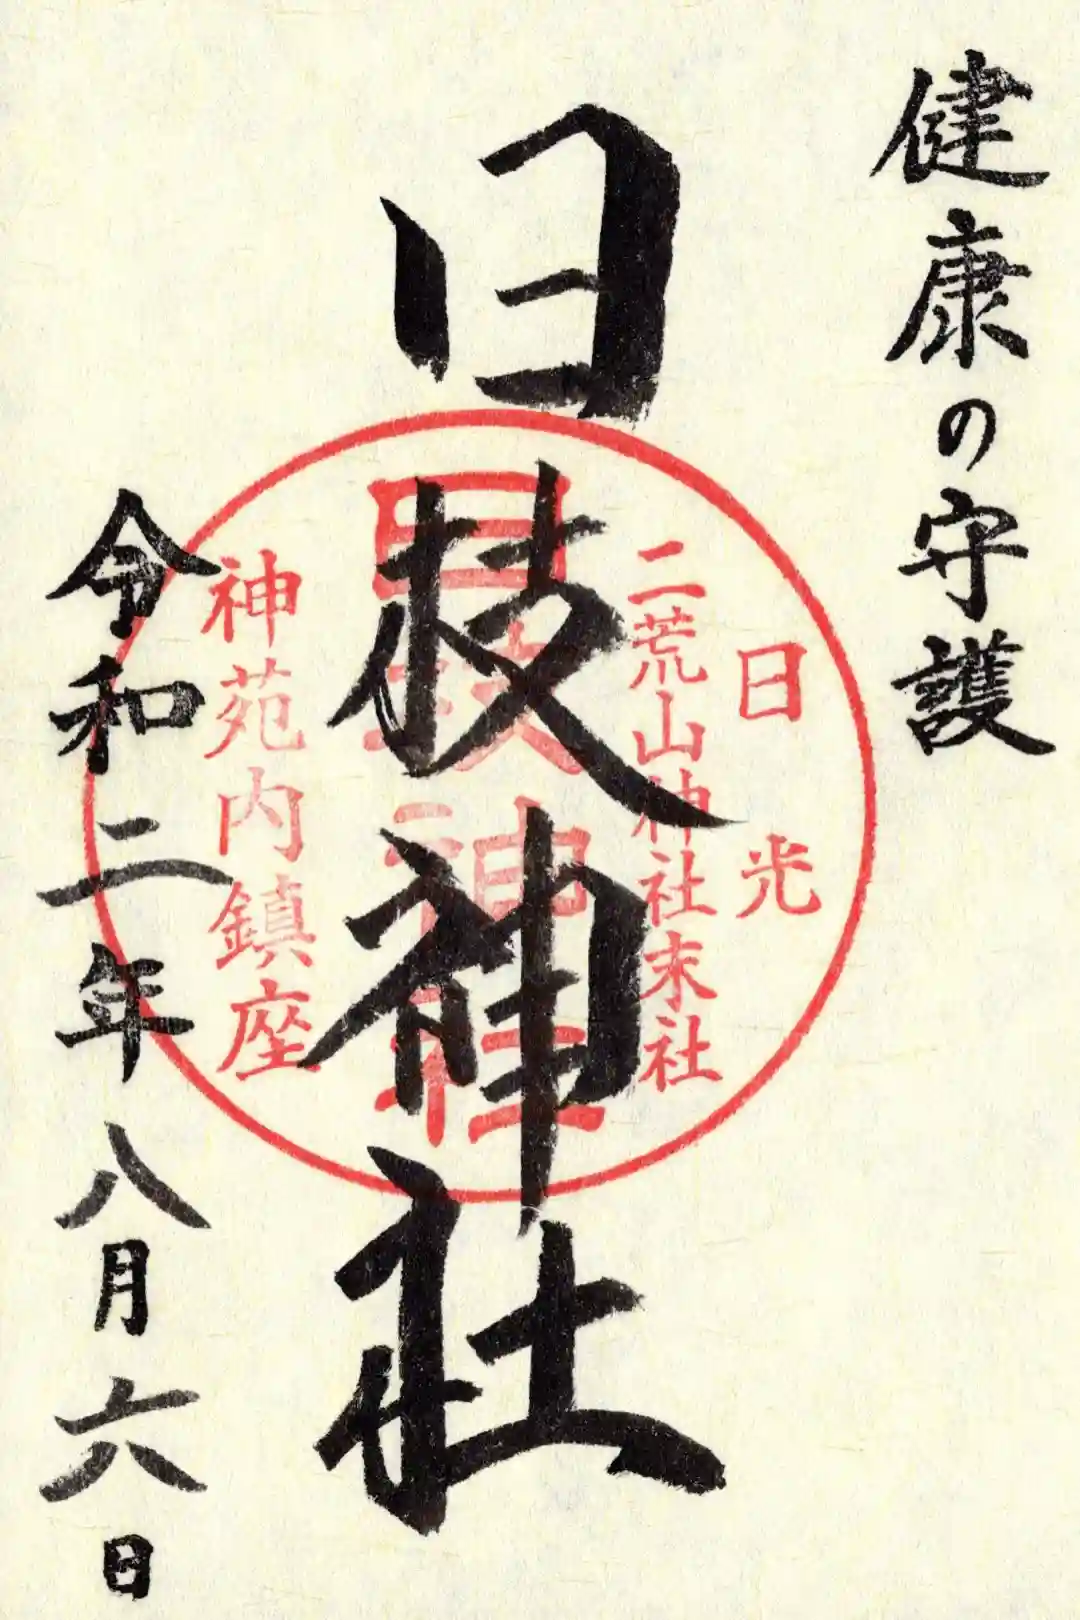 健康の守護
日光
二荒山神社末社
日枝神社
日枝神社
神苑内鎮座
令和二年八月六日